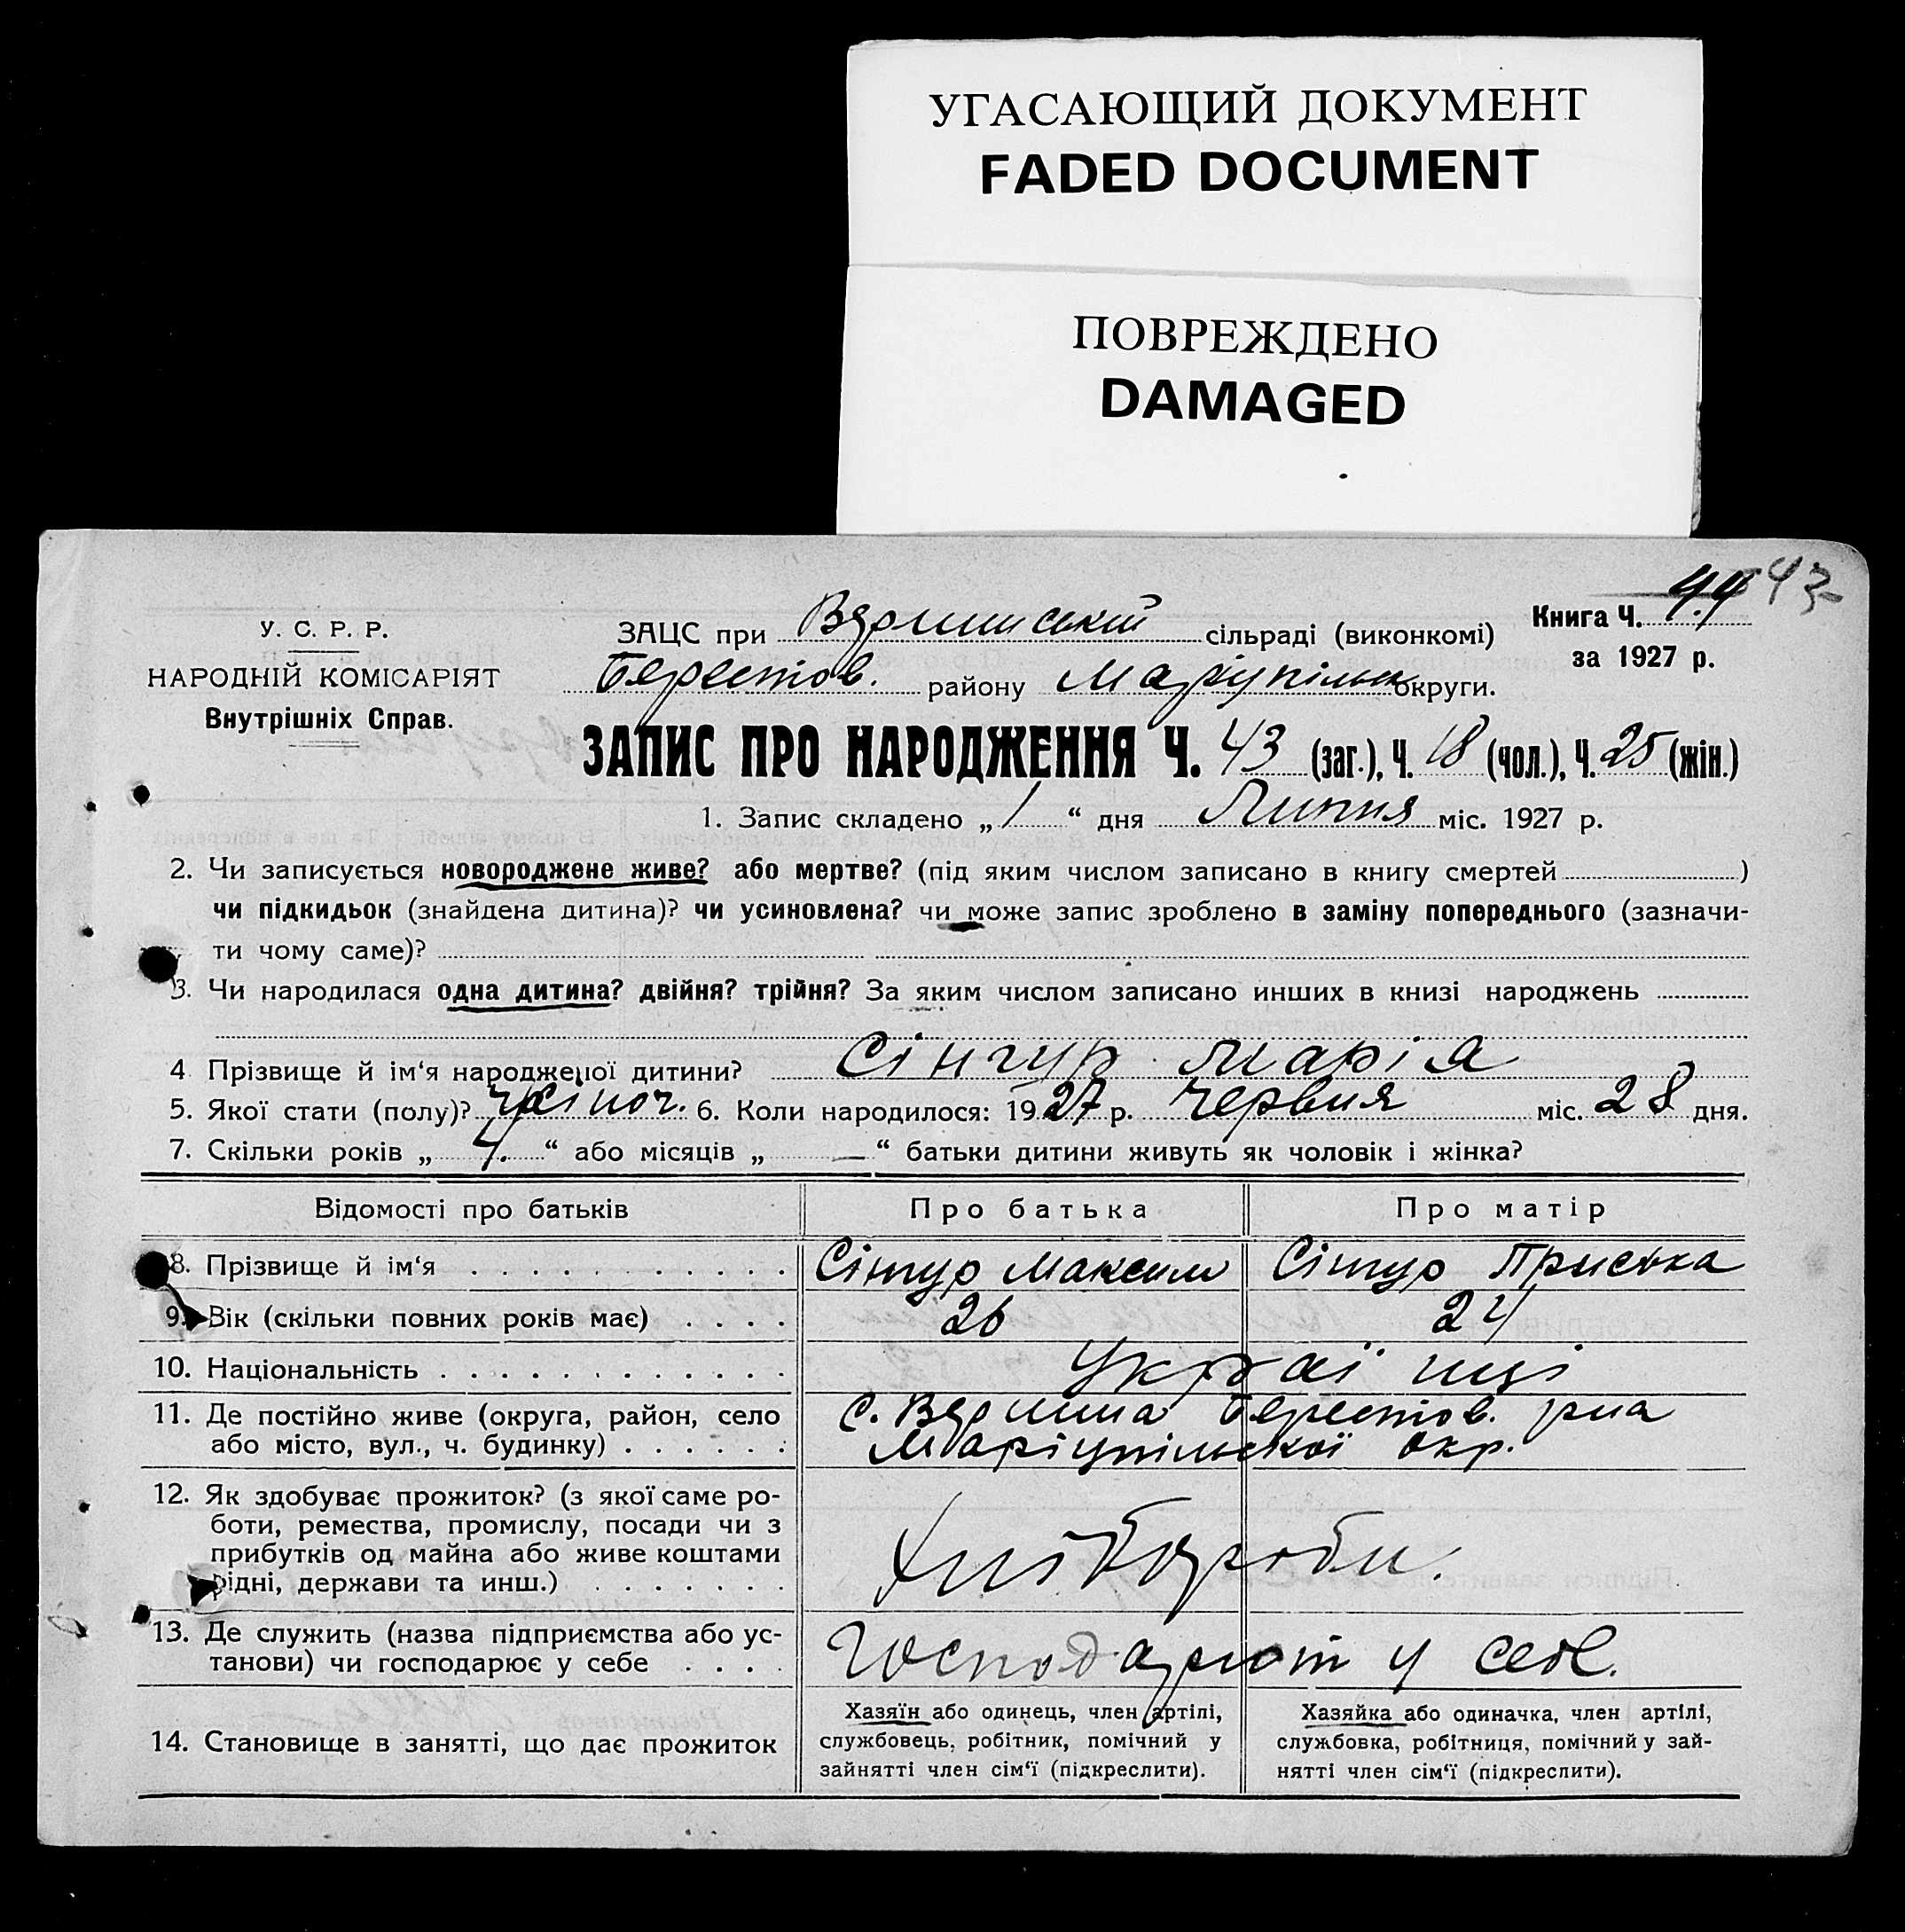 УГАСАЮЩИЙ ДОКУМЕНТ
FADED DOCUMENT
ПОВРЕЖДЕНО
DAMAGED
43
У. С. Р. Р.
НАРОДНІЙ КОМІСАРІЯТ
Внутрішніх Справ.
Книга Ч.
за 1927 р.
ЗАЦС при сільраді (виконкомі)
Берестов. району Маріупільск округи.
ЗАПИС ПРО НАРОДЖЕННЯ Ч. 43 (заг.), Ч. 18 (чол.), Ч. 25 (жін.)
1. Запис складено „ 1 “ дня Липня міс. 1927 р.
2. Чи записується новороджене живе? або мертве? (під яким числом записано в книгу смертей )
чи підкидьок (знайдена дитина)? чи усиновлена? чи може запис зроблено в заміну попереднього (зазначи-
ти чому саме)?
3. Чи народилася одна дитина? двійня? трійня? За яким числом записано инших в книзі народжень
4 Прізвище й ім‘я народженої дитини? Сінгур Марія
5. Якої стати (полу)? жіноч. 6. Коли народилося: 1927 р. Червня міс. 28 дня.
7. Скільки років „ 4. “ або місяців „ — “ батьки дитини живуть як чоловік і жінка?
Відомості про батьків Про батька Про матір
8. Прізвище й ім‘я Сінгур Максим Сінгур Приська
9. Вік (скільки повних років має) 26 24
10. Національність Українці
11. Де постійно живе (округа, район, село
або місто, вул., ч. будинку)
с. Берестов. рна
Маріупільскої окр.
12. Як здобуває прожиток? (з якої саме ро-
боти, ремества, промислу, посади чи з
прибутків од майна або живе коштами
рідні, держави та инш.)
Хліборобы.
13. Де служить (назва підприємства або ус-
танови) чи господарює у себе
Господарют у себе.
14. Становище в занятті, що дає прожиток
Хазяїн або одинець, член артілі,
службовець, робітник, помічний у
зайнятті член сім‘ї (підкреслити).
Хазяйка або одиначка, член артілі,
службовка, робітниця, помічний у зай-
нятті член сім‘ї (підкреслити).